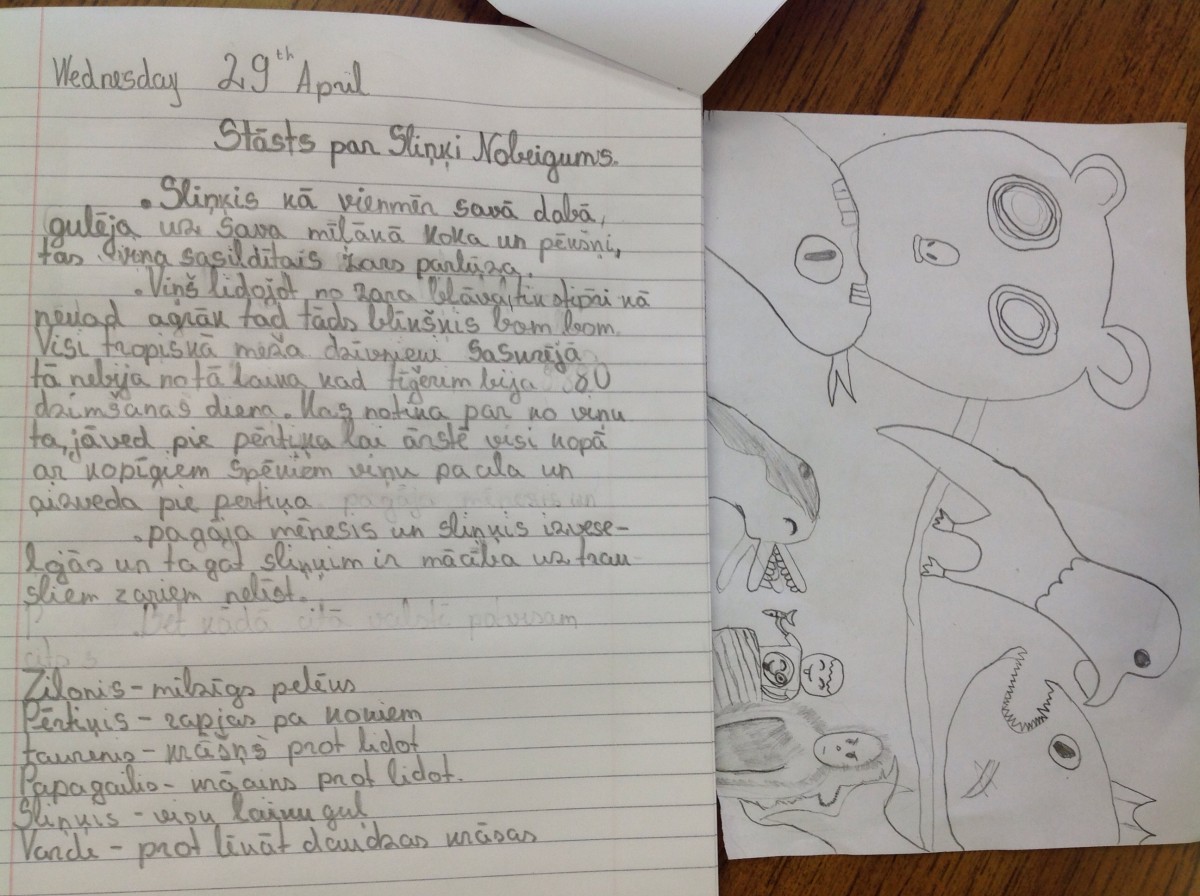 Wednesday 29th April
Stāsts par Sliņķi Nobeigums.
Sliņķis kā vienmēr savā dabā,
gulēja uz sava mīļākā koka un pēkšņi,
tas viņa sasildītais zars pārlūza.
Viņš lidojot no zara blāva tik stipri kā
nekad agrāk tad tāds blīkšķis bom bom.
Visi tropiskā meža dzīvnieki sasurējā
tā nebija no tā laika kad tīģerim bija 80
dzimšanas diena. Kas notika par no viņu
ta, jāved pie pērtiķa lai ārstē visi kopā
ar kopīgiem spēkiem viņu pacēla un
aizveda pie pertiķa pagāja mēnesis un
pagāja mēnesis un sliņķis izvese-
ļojās un tagat sliņķim ir mācība uz trau-
sliem zariem nelīst.
Bet kādā citā valstī pavisam
Zilonis - milzīgs pelēks
Pērtiķis - rāpjas pa kokiem
taurenis - krāšņš prot lidot
Papagailis - krāains prot lidot.
Sliņķis - visu laiku gul
Varde - prot līnāt daudzas krāsas